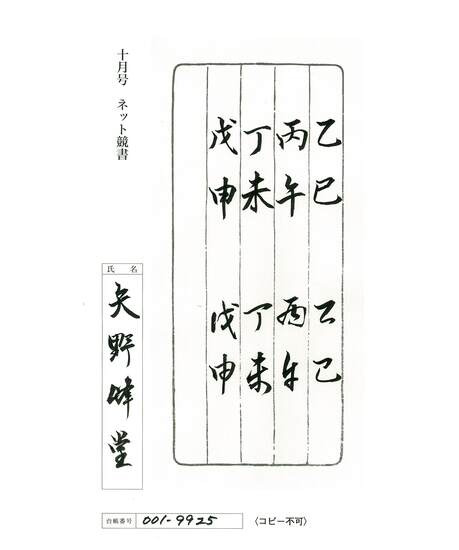 乙巳 乙巳
丙午 丙午
丁未 丁未
戊申 戊申
十月号 ネット競書
氏名
矢野峰堂
台帳番号 001-9925 〈コピー不可〉